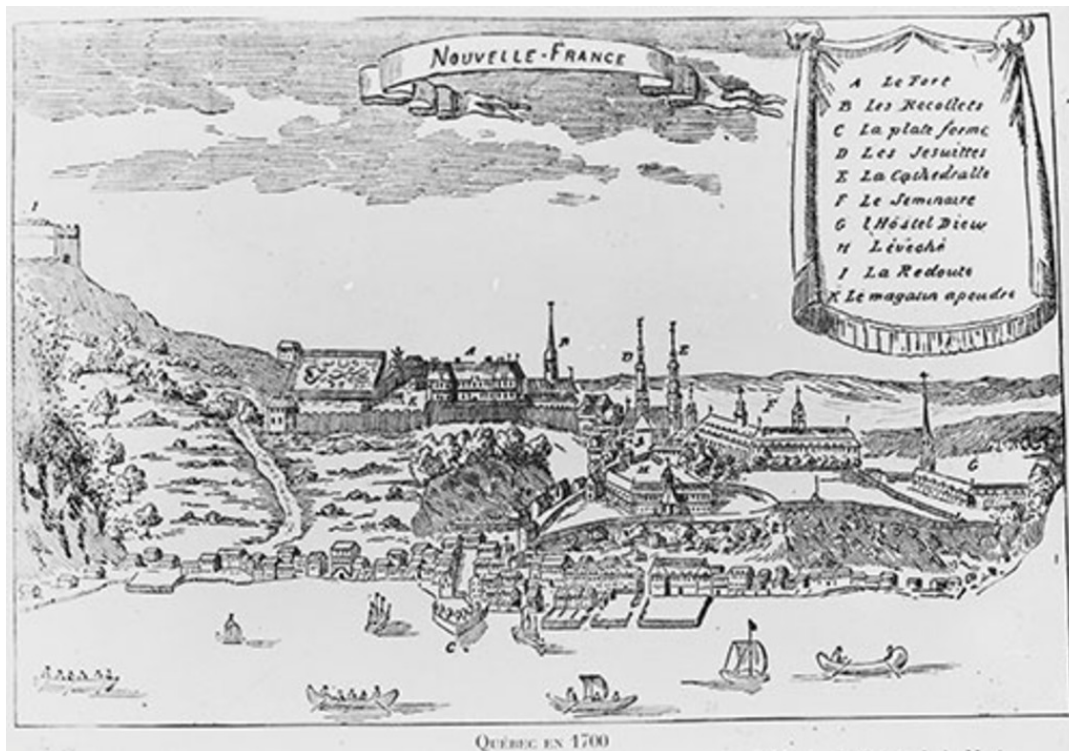 NOUVELLE-FRANCE
A Le Fort
B Les Recollets
C La plate forme
D Les Jesuittes
E La Cathedralle
F Le Seminaire
G l'Hostel Dieu
H L'évêché
I La Redoute
K Le magasin a poudre
I
A
B
D
E
F
K
H
G
C
QUÉBEC EN 1700